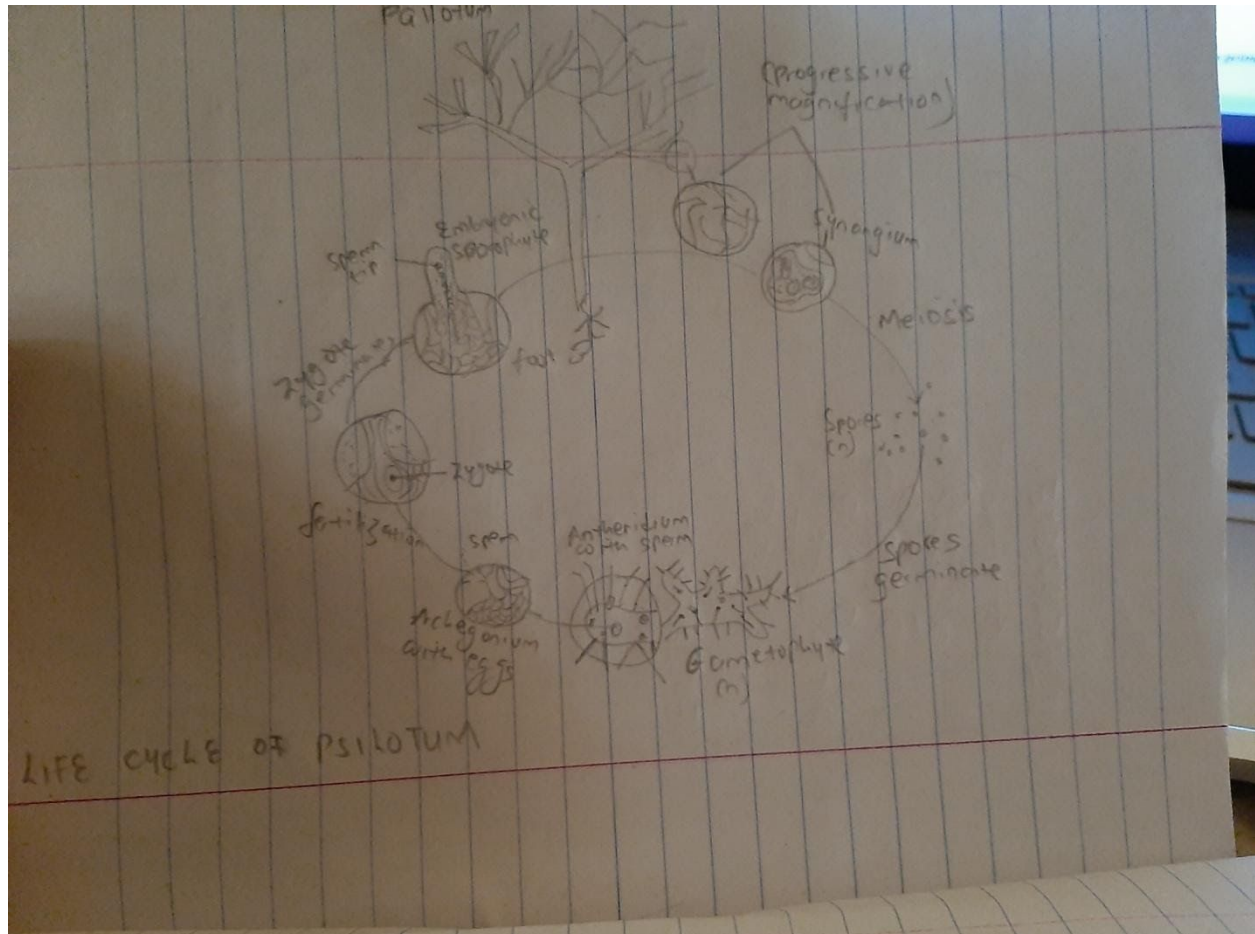 PSILOTUM
(progressive
magnification)
Synangium
Meiosis
Spores
(n)
Spores
germinate
Gametophyte
(n)
Antheridium
with sperm
sperm
Archegonium
with eggs
fertilization
Zygote
Zygote
germinates
foot
Embryonic
sporophyte
LIFE CYCLE OF PSILOTUM